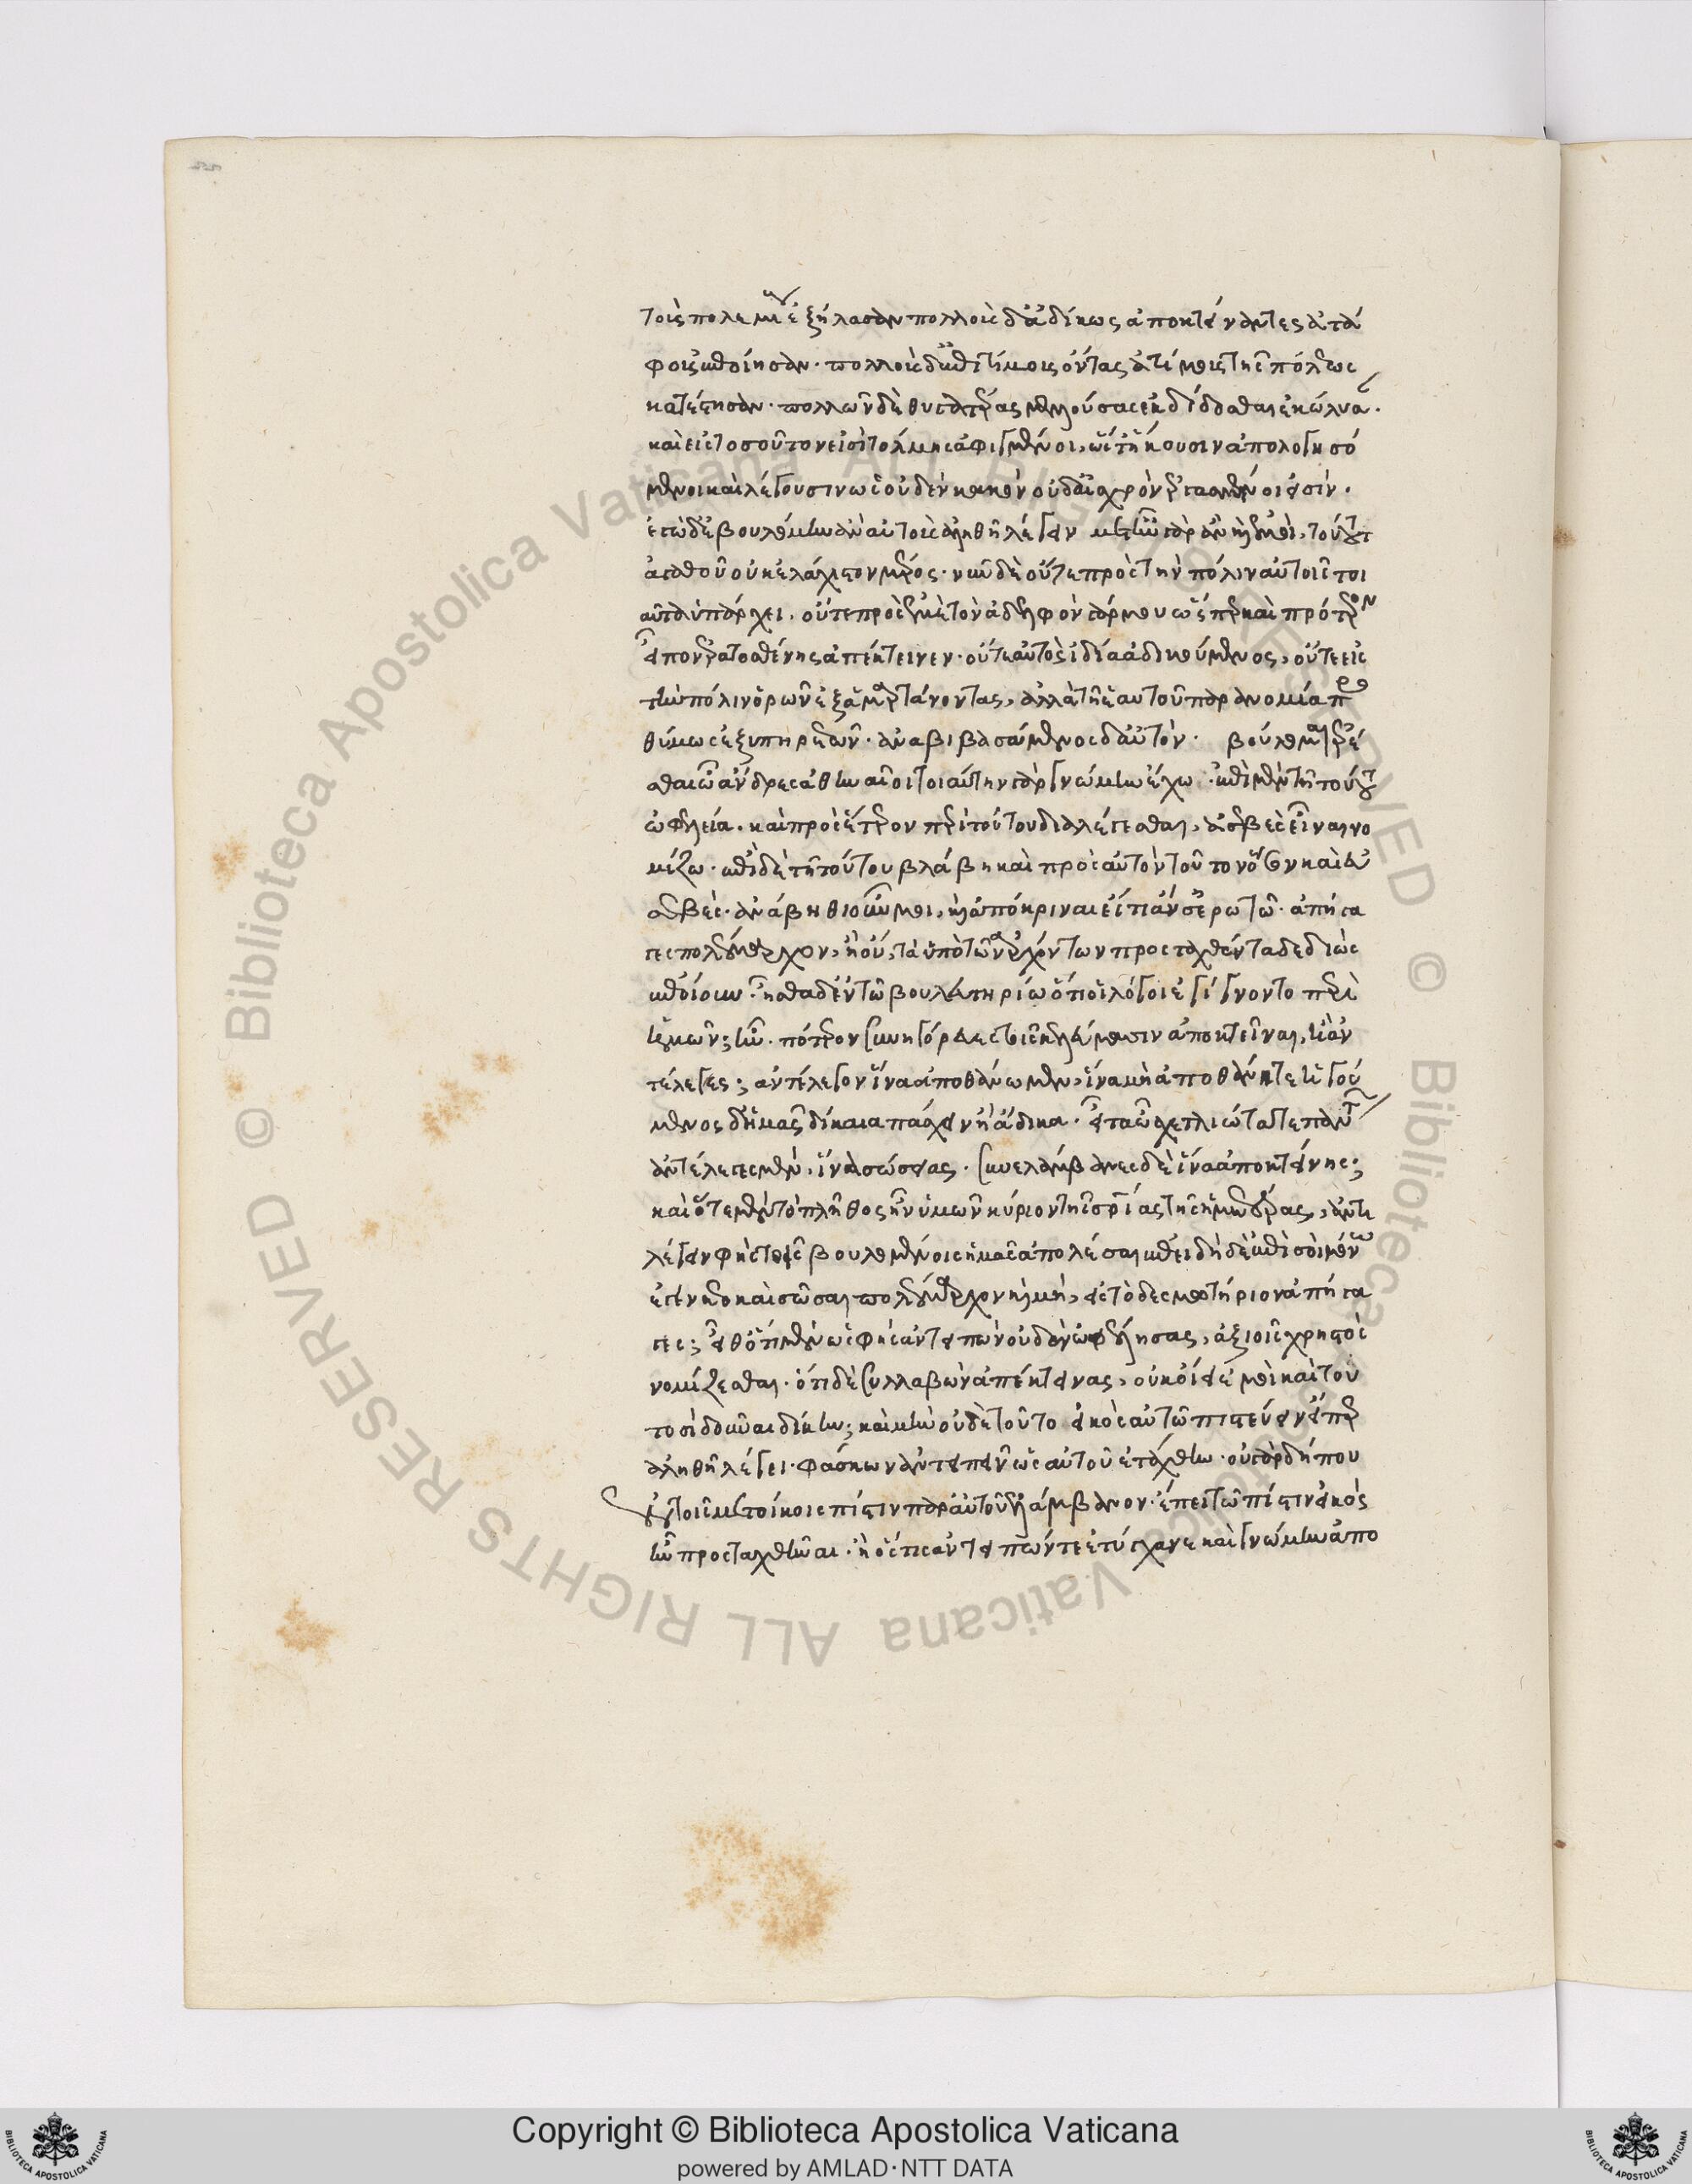 τοὺς πολεμίους ἐξήλασαν πολλοὺς δ' ἀδίκως ἀποκτείναντες ἀτά
φους ἐποίησαν· πολλοὺς δ' ἐπιτίμους ὄντας ἀτίμους τῆς πόλεως
κατέστησαν· πολλῶν δὲ θυγατέρας μελλούσας ἐκδίδοσθαι ἐκώλυσαν·
καὶ εἰς τοσοῦτον εἰσὶ τόλμης ἀφιγμένοι, ὥστε ἥκουσιν ἀπολογησό
μενοι καὶ λέγουσιν ὡς οὐδὲν κακὸν οὐδ' αἰσχρὸν εἰργασμένοι εἰσίν·
ἐγὼ δ' ἐβουλόμην ἂν αὐτοὺς ἀληθῆ λέγειν μετῆν γὰρ ἂν καὶ ἐμοὶ, τούτου τ
ἀγαθοῦ οὐκ ἐλάχιστον μέρος· νῦν δὲ οὔτε πρὸς τὴν πόλιν αὐτοῖς τοι
αῦτα ὑπάρχει, οὔτε πρὸς ἐμὲ τὸν ἀδελφὸν γάρ μου ὥσπερ καὶ πρότερον
εἶπον ἐρατοσθένης ἀπέκτεινεν· οὔτε αὐτὸς ἰδία ἀδικούμενος, οὔτε εἰς
τὴν πόλιν ὁρῶν ἐξαμαρτάνοντας, ἀλλὰ τῆ ἑαυτοῦ παρανομία προ
θύμως ἐξυπηρετῶν· ἀναβιβασάμενος δ' αὐτὸν· βούλομαι ἐρέ
σθαι ὦ ἄνδρες ἀθηναῖοι τοιαύτην γὰρ γνώμην ἔχω· ἐπὶ μὲν τῆ τούτου
ὠφελεία· καὶ πρὸς ἕτερον περὶ τούτου διαλέγεσθαι, ἀσεβὲς εἶναι νο
μίζω· ἐπὶ δὲ τῆ τούτου βλάβη καὶ πρὸς αὐτὸν τοῦτον ὅσιον καὶ εὐ
σεβὲς· ἀνάβηθι οὖν μοι, καὶ ἀπόκριναι εἴ τι ἄν σε ἐρωτῶ· ἀπήγα
γες πολέμαρχον, ἢ οὔ, τὰ ὑπὸ τῶν ἀρχόντων προσταχθέντα δεδιὼς
ἐποίουν· ἦσθα δ' ἐν τῶ βουλευτηρίω ὅτι οἱ λόγοι ἐγίγνοντο περὶ
ἡμῶν; ἦν· πότερον συνηγόρευες τοῖς κελεύουσιν ἀποκτεῖναι, ἢ ἀν
τέλεγες; ἀντέλεγον ἵνα ἀποθάνωμεν, ἵνα μὴ ἀποθάνητε ἡγού
μενος δ' ἡμᾶς δίκαια πάσχειν ἢ ἄδικα· εἶτα ὦ σχετλιώτατε πάντων
ἀντέλεγες μὲν, ἵνα σώσειας· συνελάμβανες δὲ ἵνα ἀποκτείνης;
καὶ ὅτε μὲν τὸ πλῆθος ἦν ὑμῶν κύριον τῆς σωτηρίας τῆς ἡμετέρας, ἀντι
λέγειν φὴς τοῖς βουλομένοις ἡμᾶς ἀπολέσαι ἐπειδὴ δὲ ἐπὶ σοὶ μόνω
ἐγένετο καὶ σῶσαι πολέμαρχον καὶ μή, εἰς τὸ δεσμωτήριον ἀπήγα
γες; εἶθ' ὅτι μὲν ὡς φὴς ἀντειπὼν οὐδὲν ὠφέλησας, ἀξιοῖς χρηστὸς
νομίζεσθαι· ὅτι δὲ συλλαβὼν ἀπέκτεινας, οὐκ οἴει ἐμοὶ καὶ του
τοσὶ δοῦναι δίκην; καὶ μὴν οὐδὲ τοῦτο εἰκὸς αὐτῶ πιστεύειν εἴπερ
ἀληθῆ λέγει· φάσκων ἀντειπεῖν ὡς αὐτοῦ ἐτάχθη· οὐ γὰρ δήπου
ἐν τοῖς μετοίκοις πίστιν παρ' αὐτοῦ ἐλάμβανον· ἔπει τῶ πίστιν εἰκὸς
ἦν προσταχθῆναι· ἢ ὅστις ἀντειπών τε ἐτύγχανε καὶ γνώμην ἀπο